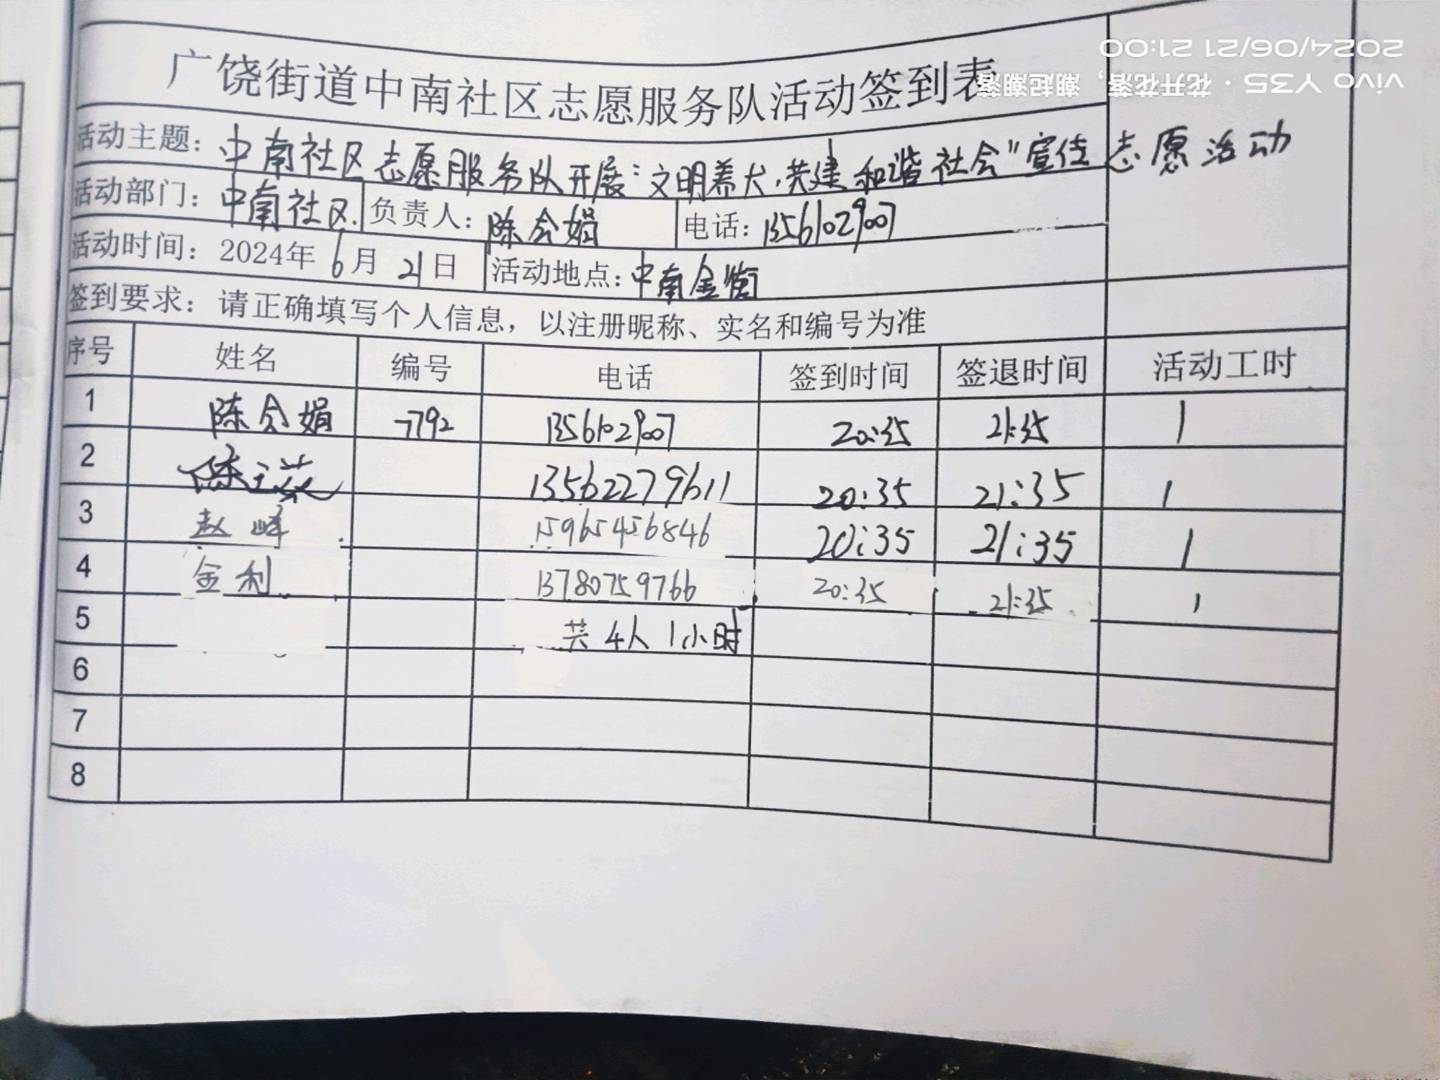 广饶街道中南社区志愿服务队活动签到表
活动主题：中南社区志愿服务队开展“文明养犬，共建和谐社会”宣传志愿活动
活动部门：中南社区 负责人：陈会娟 电话：13561029007
活动时间：2024年6月21日 活动地点：中南金街
签到要求：请正确填写个人信息，以注册昵称、实名和编号为准
序号 姓名 编号 电话 签到时间 签退时间 活动工时
1 陈会娟 7792 13561029007 20:35 21:35 1
2 13562279611 20:35 21:35 1
3 赵峰 15965456846 20:35 21:35 1
4 金利 13780759766 20:35 21:35 1
5 共4人1小时
6
7
8
vivo Y35 · 花开花落，潮起潮落
2024/06/21 21:00